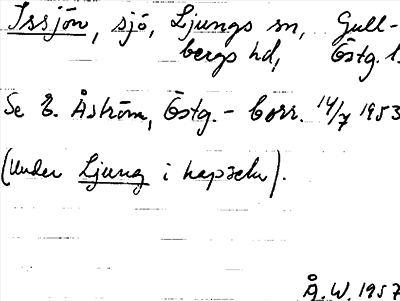 Issjön, sjö, Ljungs sn, Gull-
bergs hd, Östg. l.
Se E. Åström, Östg.-Corr. 14/7 1953
(under Ljung i kapseln).
Å.W. 1957